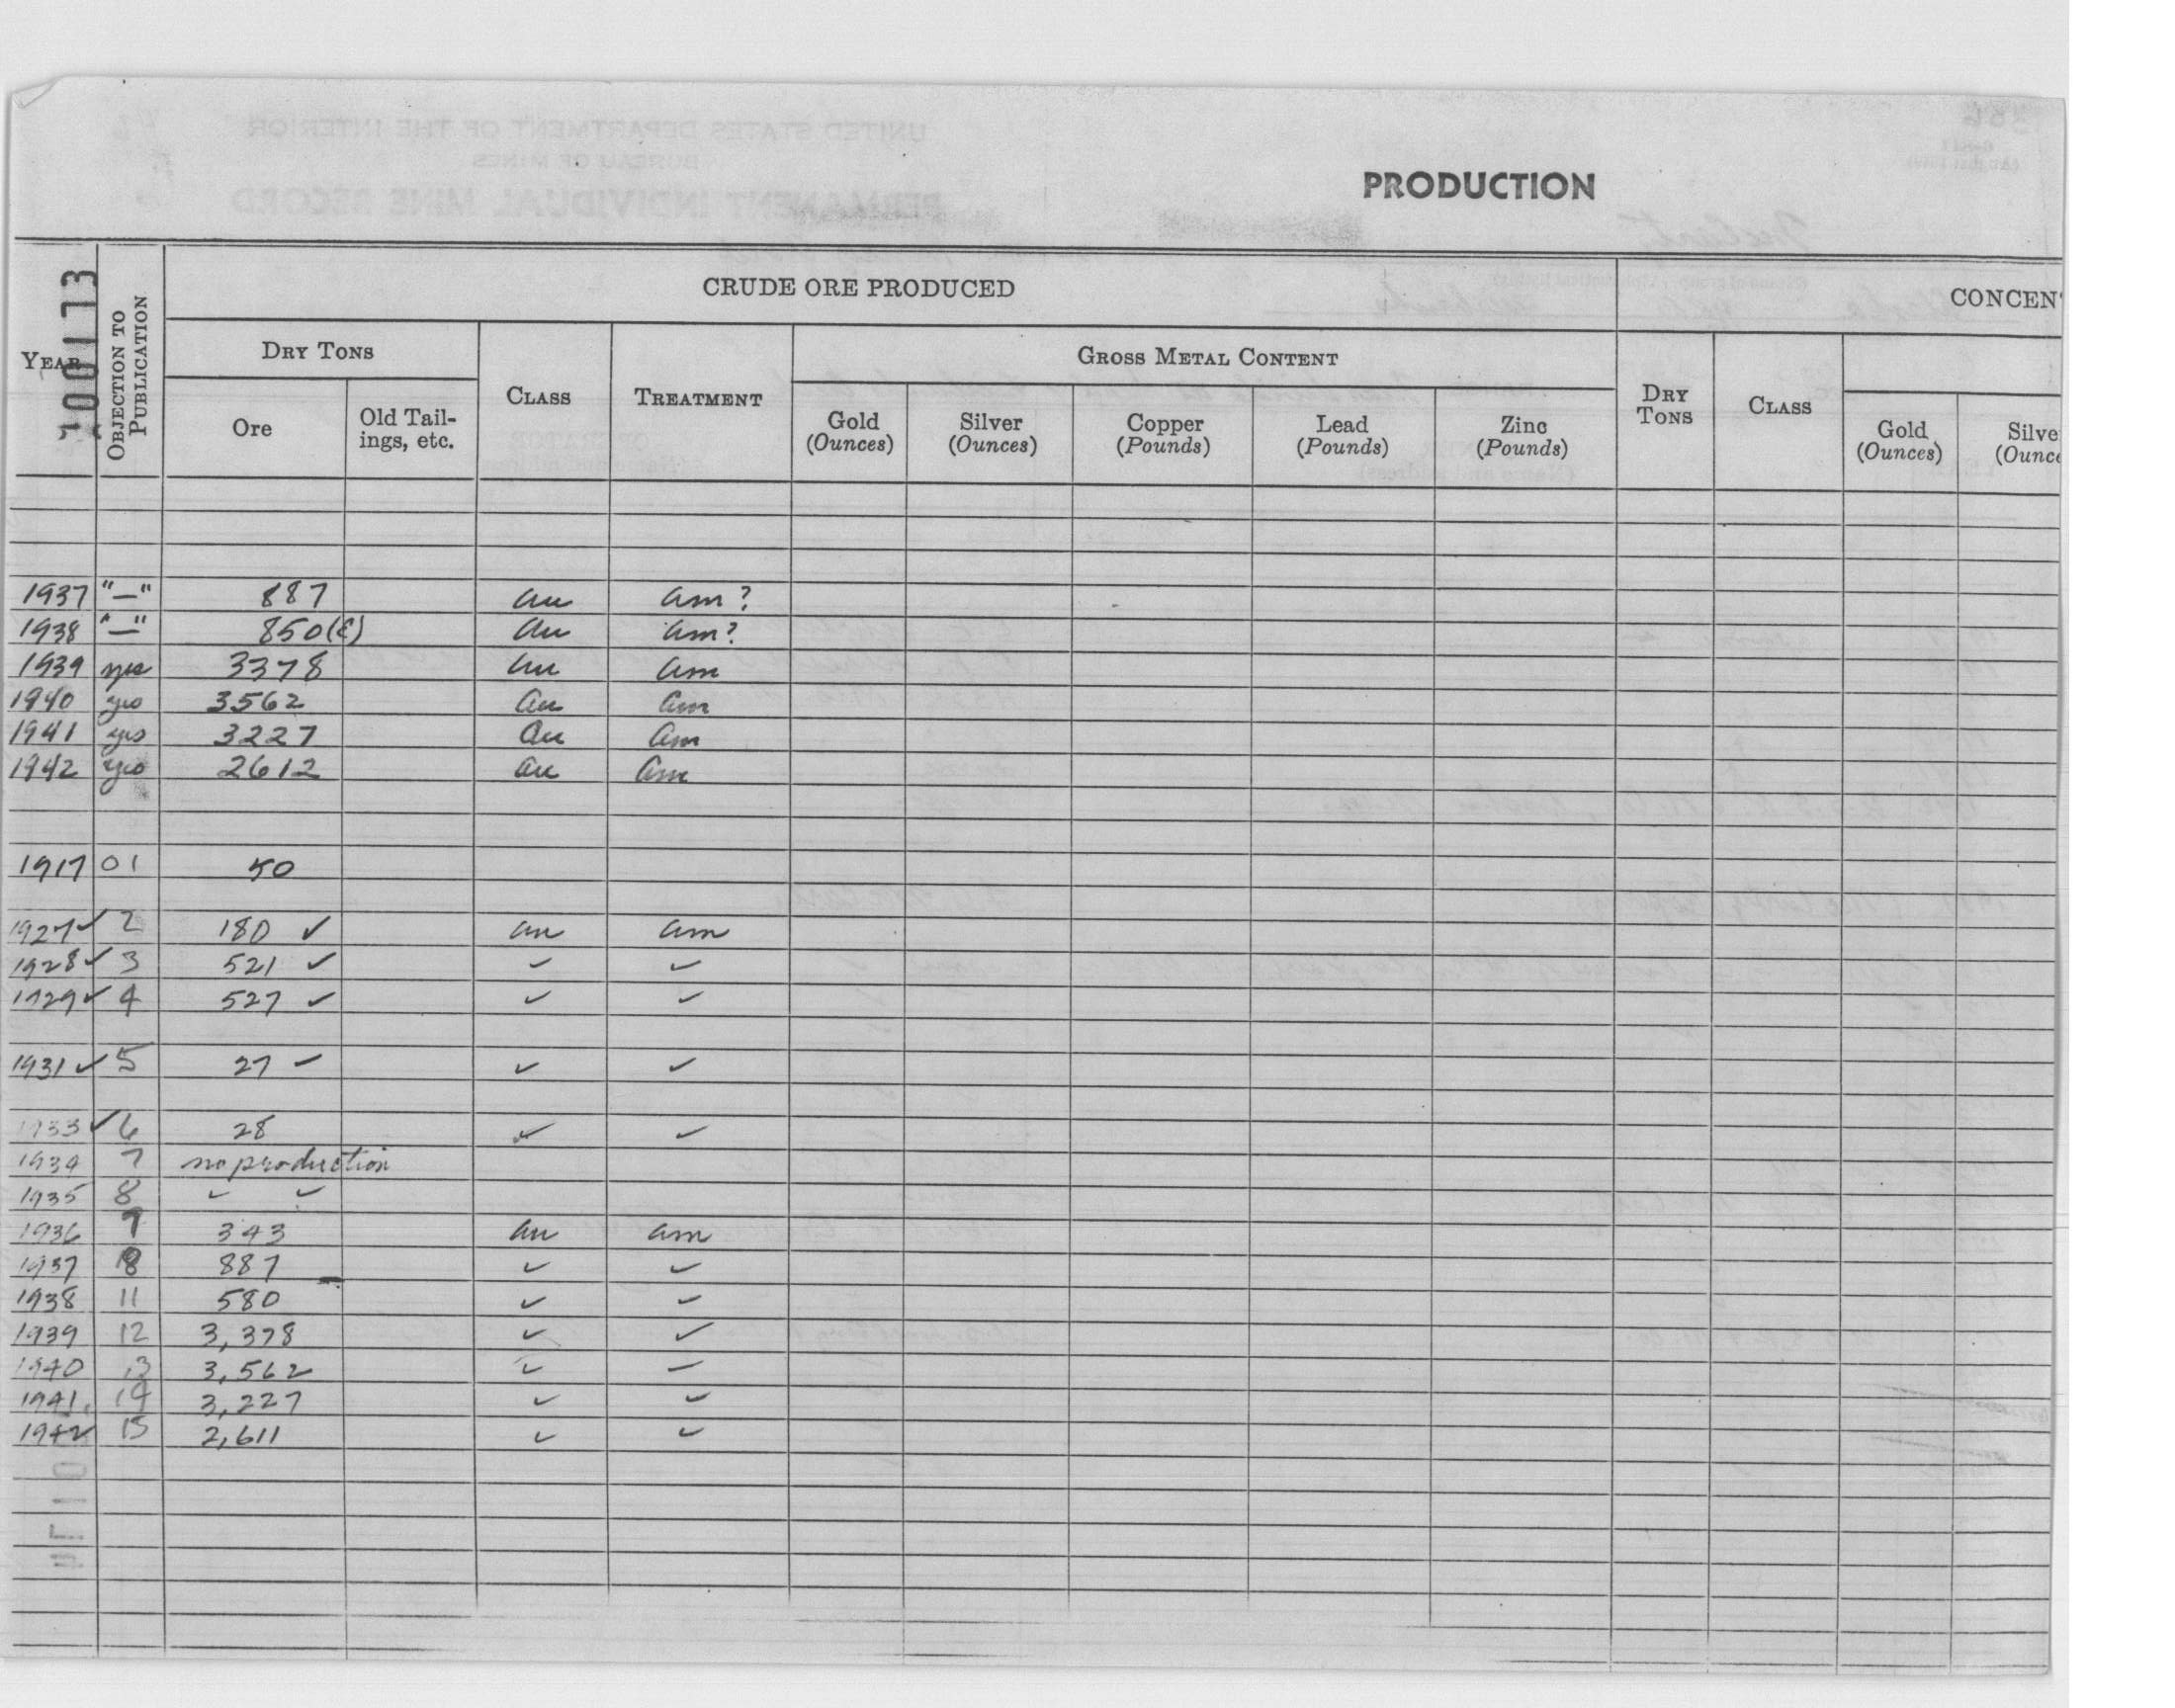 PRODUCTION
100173
YEAR
OBJECTION TO PUBLICATION
CRUDE ORE PRODUCED
CONCEN
DRY TONS
CLASS
TREATMENT
GROSS METAL CONTENT
DRY TONS
CLASS
Ore
Old Tail-
ings, etc.
Gold
(Ounces)
Silver
(Ounces)
Copper
(Pounds)
Lead
(Pounds)
Zinc
(Pounds)
Gold
(Ounces)
Silve
(Ounce
1937 "—" 887 au am?
1938 "—" 850(E) au am?
1939 yes 3378 au am
1940 yes 3562 au am
1941 yes 3227 au am
1942 yes 2612 au am
1917 01 50
1927 ✓ 2 180 ✓ au am
1928 ✓ 3 521 ✓ ✓ ✓
1929 ✓ 4 527 ✓ ✓ ✓
1931 ✓ 5 27 ✓ ✓ ✓
1933 ✓ 6 28 ✓ ✓
1934 7 no production
1935 8 ✓ ✓
1936 9 343 au am
1937 8 887 ✓ ✓
1938 11 580 ✓ ✓
1939 12 3,378 ✓ ✓
1940 13 3,562 ✓ ✓
1941 14 3,227 ✓ ✓
1942 15 2,611 ✓ ✓